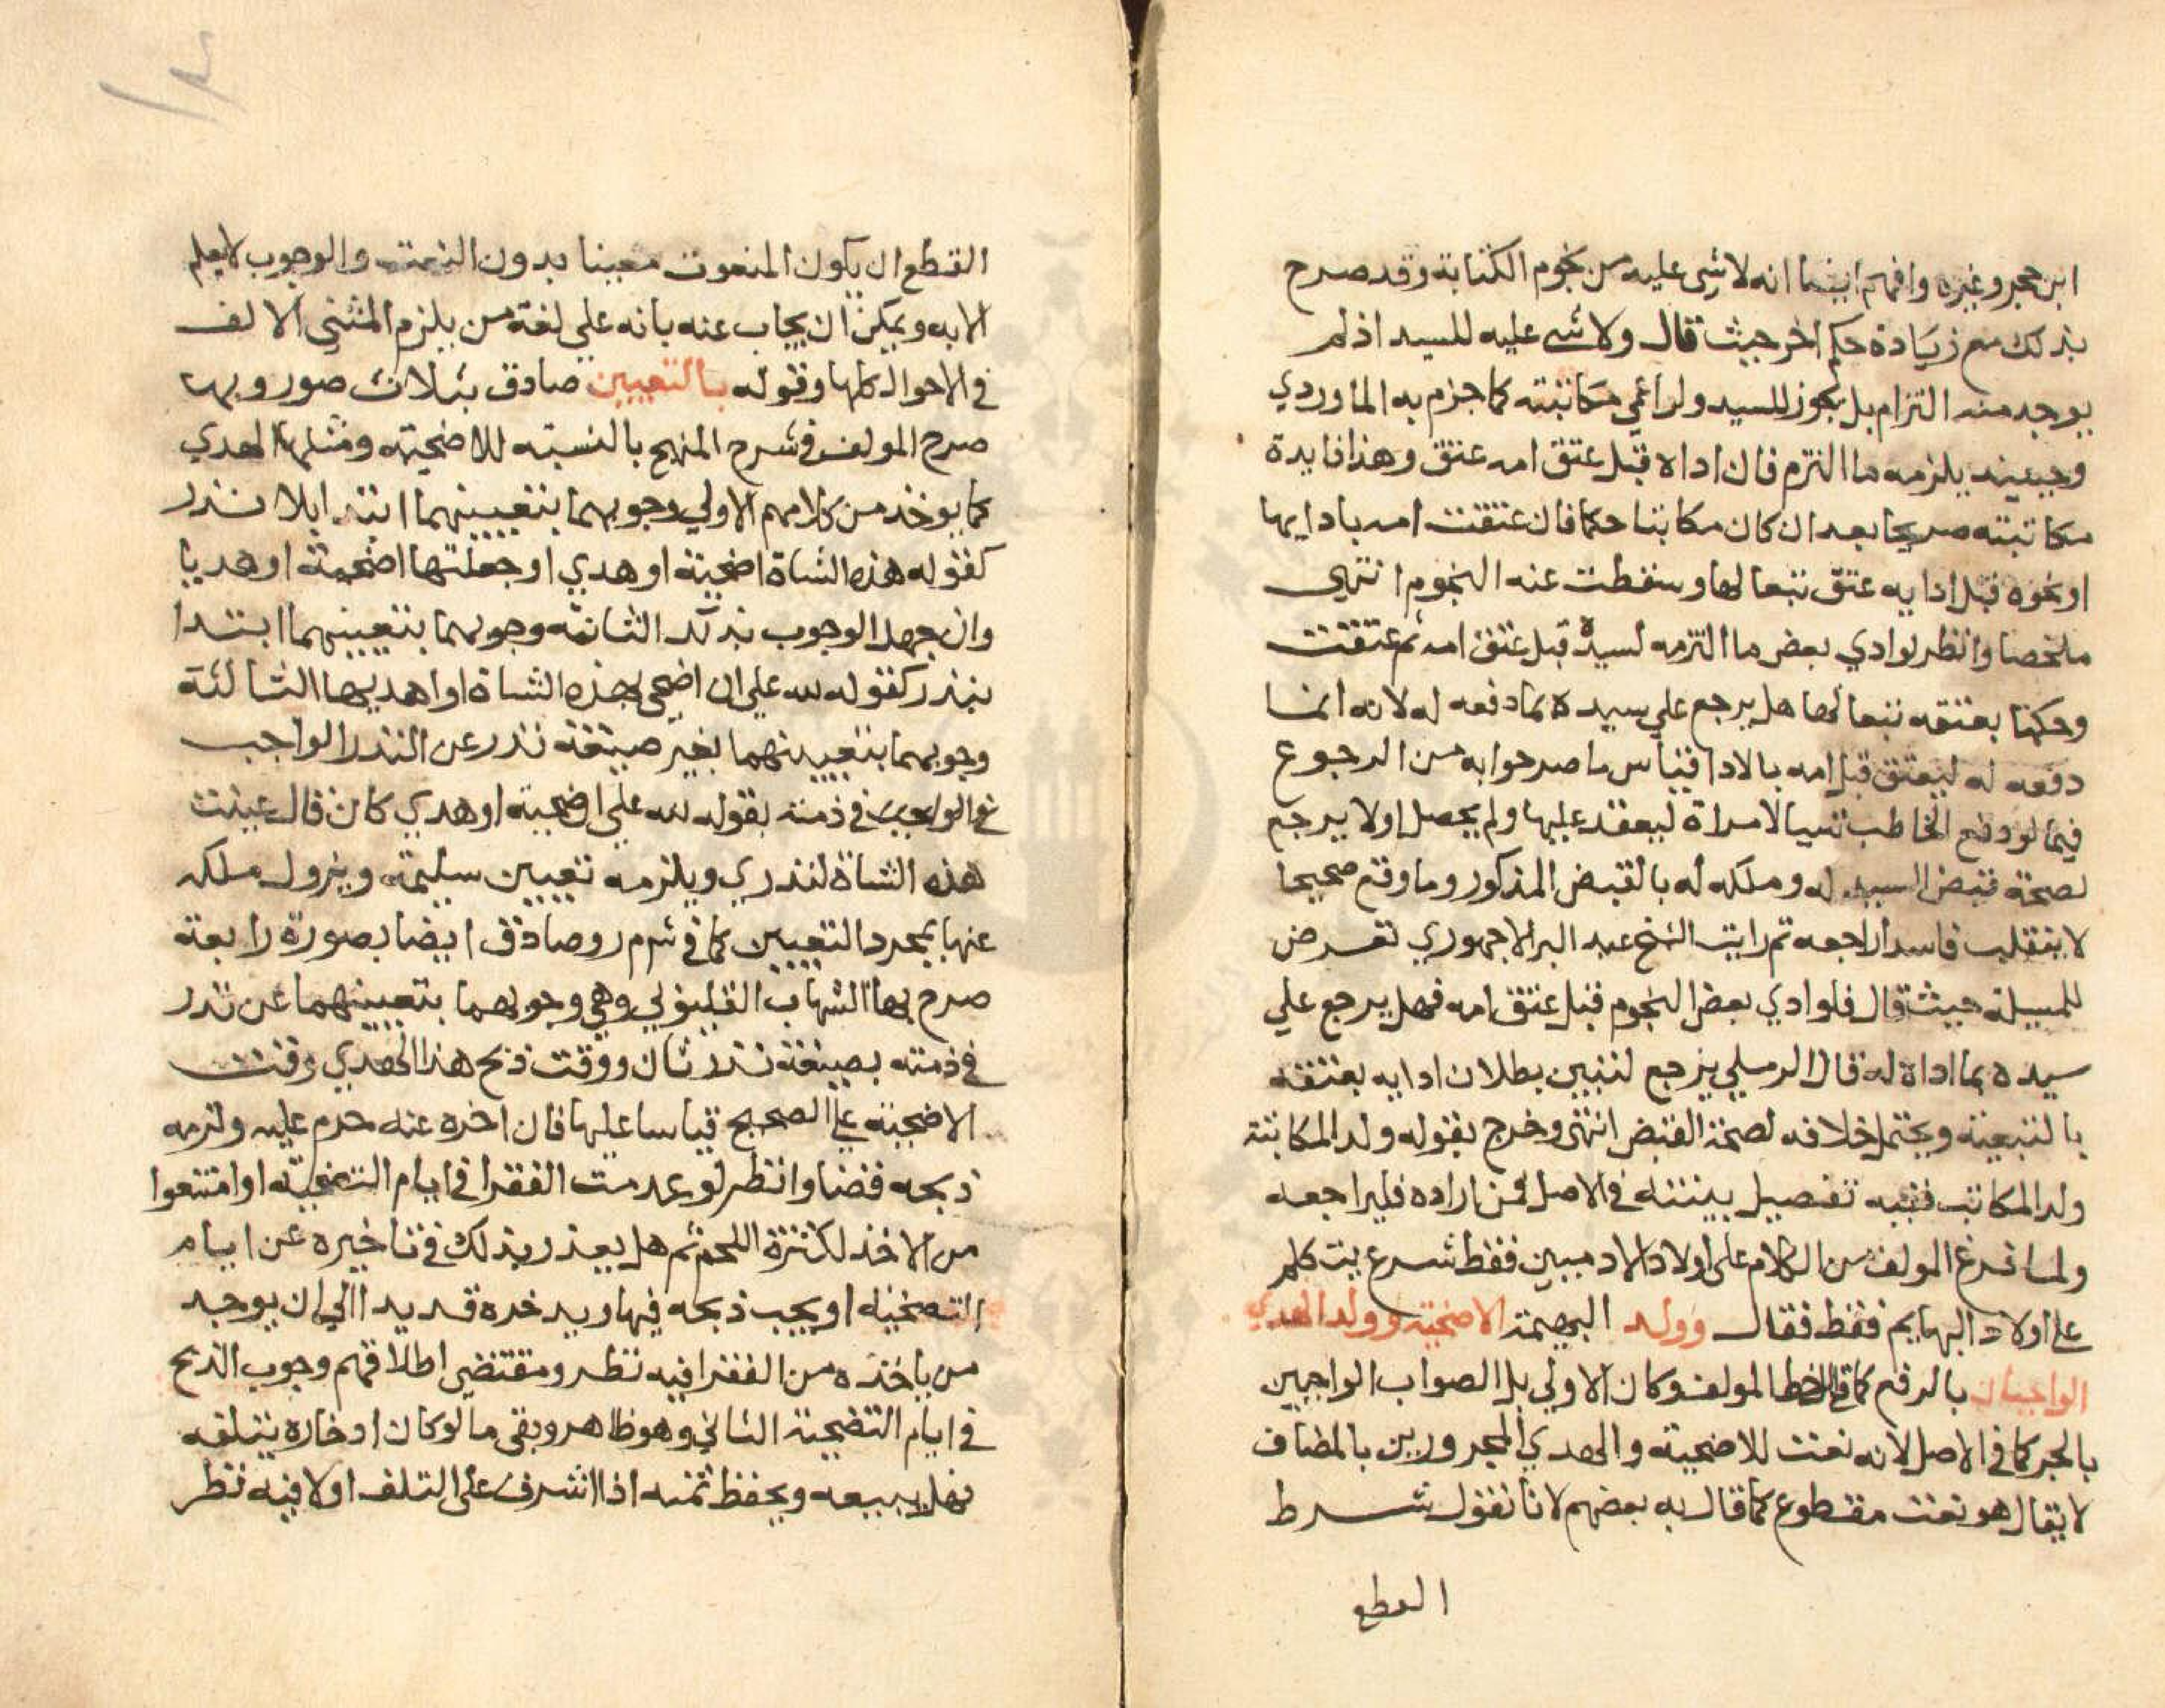 ابن حجر وغيره وافهم ايضا انه لا شي عليه من نجوم الكتابة وقد صرح
بذلك مع زيادة حكم اخر حيث قال ولا شي عليه للسيد اذ لم
يوجد منه التزام بل يجوز للسيد ولو اعمي مكاتبته كما جزم به الماوردي
وحينيذ يلزمه ما التزم فان اداه قبل عتق امه عتق وهذا فايدة
مكاتبته صريحا بعد ان كان مكاتبا حكما فان عتقت امه بادايها
او نحوه قبل ادايه عتق تبعا لها وسقطت عنه النجوم انتهي
ملخصا وانظر لو ادي بعض ما التزمه لسيده قبل عتق امه ثم عتقت
وحكمنا بعتقه تبعا لها هل يرجع علي سيده بما دفعه له لانه انما
دفعه له ليعتق قبل امه بالادا قياس ما صرحوا به من الرجوع
فيما لو دفع الخاطب شيا لامراة ليعقد عليها ولم يحصل او لا يرجع
لصحة قبض السيد له وملكه له بالقبض المذكور وما وقع صحيحا
لا ينقلب فاسدا راجعه ثم رايت الشيخ عبد البر الاجهوري تعرض
للمسيلة حيث قال فلو ادي بعض النجوم قبل عتق امه فهل يرجع علي
سيده بما اداه له قال الرملي يرجع لتبين بطلان ادايه بعتقه
بالتبعية ويحتمل خلافه لصحة القبض انتهي وخرج بقوله ولد المكاتبة
ولد المكاتب ففيه تفصيل بينته في الاصل فمن اراده فليراجعه
ولما فرغ المولف من الكلام علي اولاد الادميين فقط شرع يتكلم
علي اولاد البهايم فقط فقال وولد البهيمة الاضحية وولد الهدي
الواجبان بالرفع كما في الخط المولف وكان الاولي بل الصواب الواجبين
بالجر كما في الاصل لانه نعت للاضحية والهدي المجرورين بالمضاف
لا يقال هو نعت مقطوع كما قال به بعضهم لانا نقول شرط
القطع
القطع ان يكون المنعوت معينا بدون النعت والوجوب لا يعلم
الا به ويمكن ان يجاب عنه بانه علي لغة من يلزم المثني الالف
في الاحوال كلها وقوله بالتعيين صادق بثلاث صور وبها
صرح المولف في شرح المنهج بالنسبة للاضحية ومثلها الهدي
كما يوخذ من كلامهم الاولي وجوبهما بتعيينهما ابتدا بلا نذر
كقوله هذه الشاة اضحية او هدي او جعلتها اضحية او هديا
وان جهل الوجوب بذلك الثانية وجوبهما بتعيينهما ابتدا
بنذر كقوله لله علي ان اضحي بهذه الشاة او اهديها الثالثة
وجوبهما بتعيينهما بغير صيغة نذر عن النذر الواجب
في ذمته بقوله لله علي اضحية او هدي كان قال عينت
هذه الشاة لنذري ويلزمه تعيين سليمة ويزول ملكه
عنها بمجرد التعيين كما في شرح م ر وصادق ايضا بصورة رابعة
صرح بها الشهاب القليوبي وهي وجوبهما بتعيينهما عن نذر
في ذمته بصيغة نذر ثان ووقت ذبح هذا الهدي وقت
الاضحية علي الصحيح قياسا عليها فان اخره عنه حرم عليه ولزمه
ذبحه قضا وانظر لو عدمت الفقرا في ايام التضحية او امتنعوا
من الاخذ لكثرة اللحم ثم هل يعذر بذلك في تاخيره عن ايام
التضحية او يجب ذبحه فيها ويدخره قديدا الي ان يوجد
من ياخذه من الفقرا فيه نظر ومقتضي اطلاقهم وجوب الذبح
في ايام التضحية الثاني وهو ظاهر وبقي ما لو كان ادخاره يتلفه
فهل يبيعه ويحفظ ثمنه اذا اشرف علي التلف او لا فيه نظر